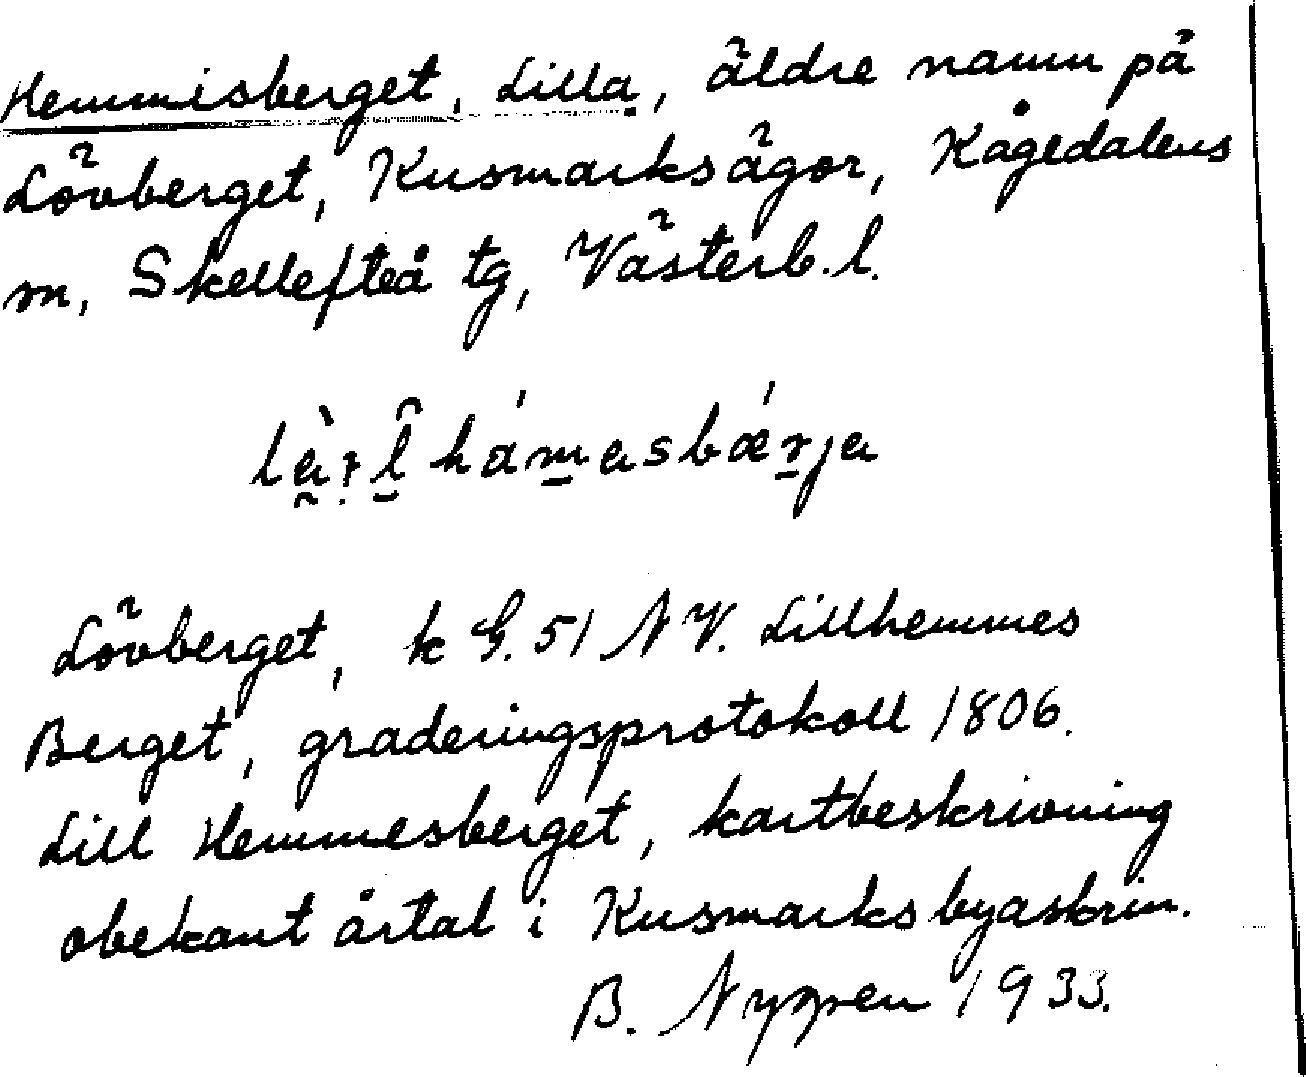 Hemmisberget, Lilla, äldre namn på
Lövberget, Kusmarksägor, Kågedalens
m, Skellefteå tg, Västerb. l.
Lövberget, k G. 51 N V. Lillhemmes
Berget, graderingsprotokoll 1806.
Lill Hemmesberget, kartbeskrivning
obekant årtal i Kusmarks byaskrin.
B. Nygren 1933.